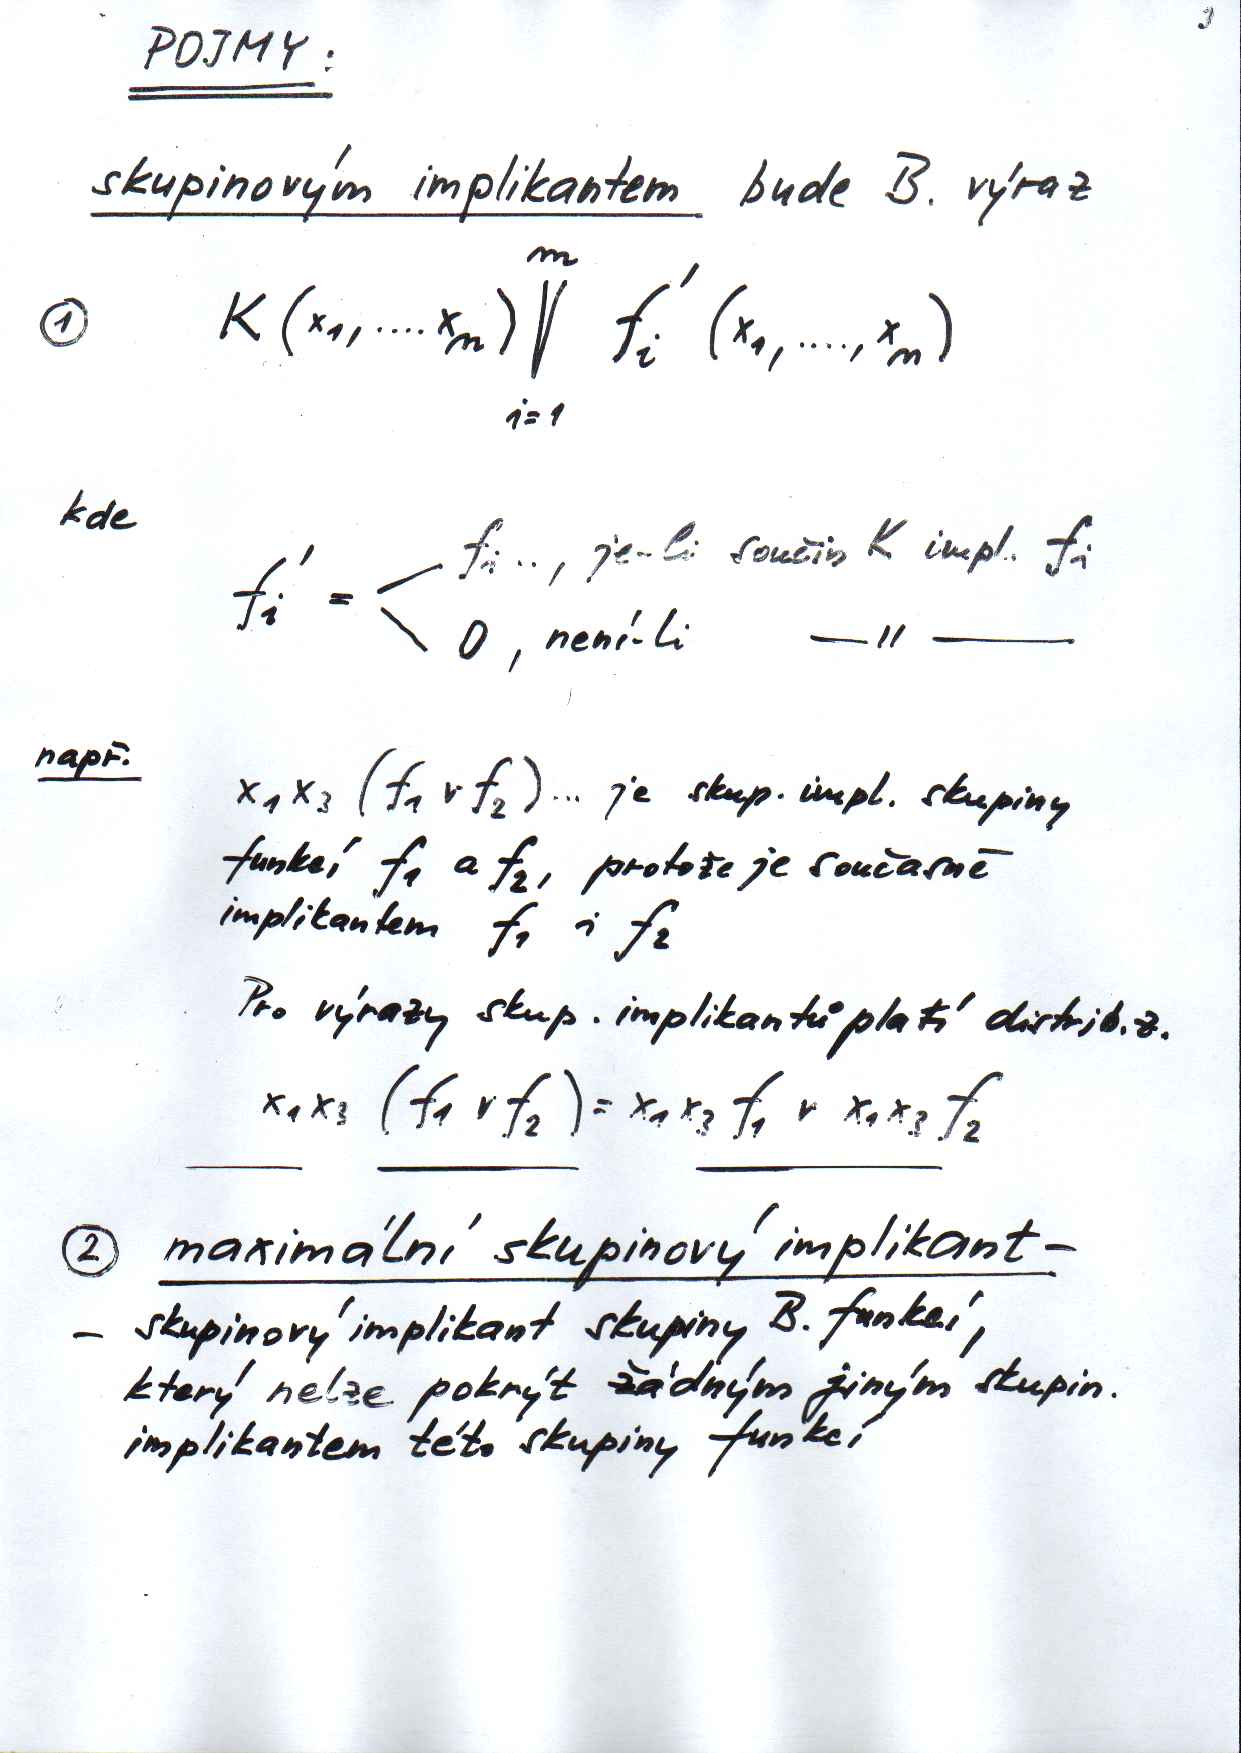 3
POJMY:
skupinovým implikantem bude B. výraz
① K(x₁,....xₙ) ⋁ᵢ₌₁ᵐ fᵢ′(x₁,....,xₙ)
kde
fᵢ′ = fᵢ.., je-li součin K impl. fᵢ
0, není-li —〃—
např.
x₁x₃ (f₁ v f₂)... je skup. impl. skupiny
funkcí f₁ a f₂, protože je současně
implikantem f₁ i f₂
Pro výrazy skup. implikantů platí distrib. z.
x₁x₃ (f₁ v f₂) = x₁x₃f₁ v x₁x₃f₂
② maximální skupinový implikant –
– skupinový implikant skupiny B. funkcí,
který nelze pokrýt žádným jiným skupin.
implikantem této skupiny funkcí